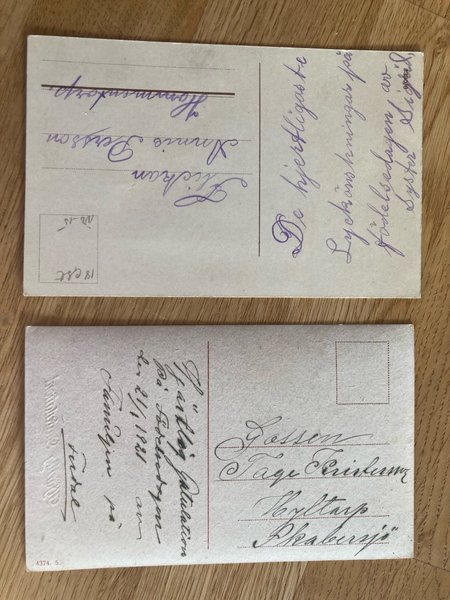 De hjertligaste
Lyckönskningar på
födelsedagen av
Syster Sigrid
Flickan
Annie Persson
Hommentorp.
Hjärtlig Gratulation
på Födelsedagen
den 21/1 1921 av
Familjen på
Gossen
Tage Kristersson
Hyltarp
Skabersjö
4374. 5.